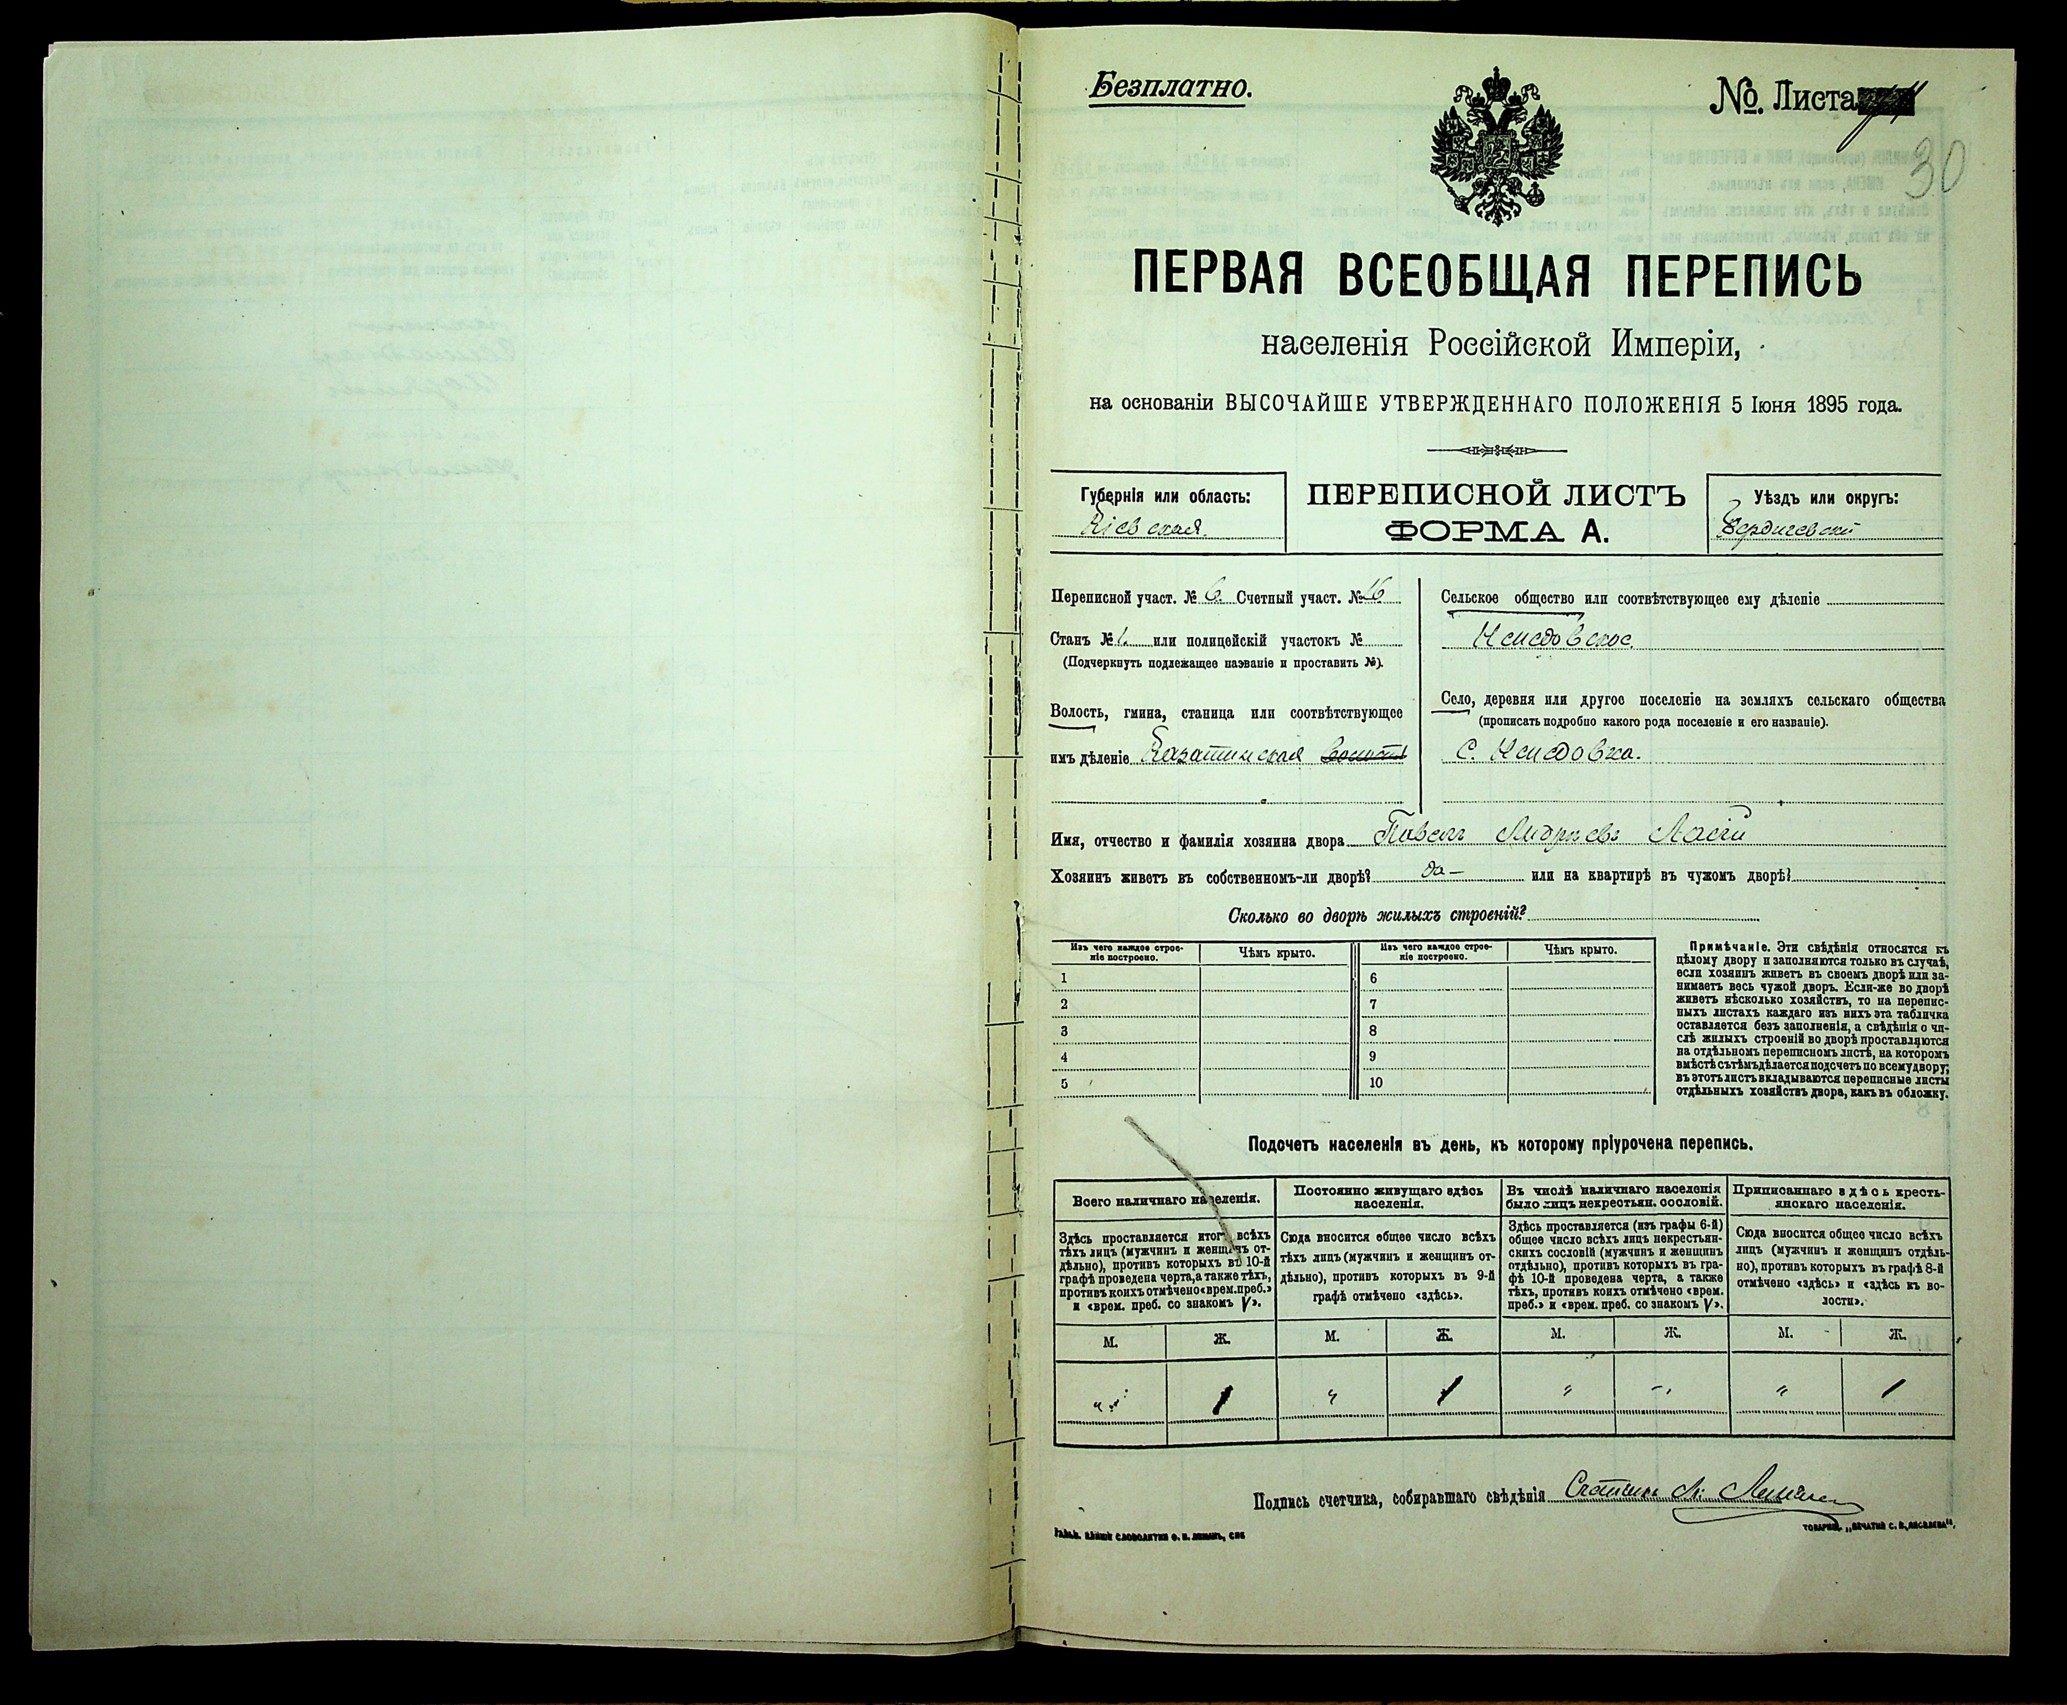 Безплатно.
№. Листа
30
ПЕРВАЯ ВСЕОБЩАЯ ПЕРЕПИСЬ
населенія Россійской Имперіи,
на основаніи ВЫСОЧАЙШЕ УТВЕРЖДЕННАГО ПОЛОЖЕНІЯ 5 Іюня 1895 года.
Губернія или область:
Кіевская.
ПЕРЕПИСНОЙ ЛИСТЪ
ФОРМА А.
Уѣздъ или округъ:
Бердичевскій
Переписной участ. № 6. Счетный участ. № 16
Станъ № 1. или полицейскій участокъ №
(Подчеркнуть подлежащее названіе и проставить №).
Волость, гмина, станица или соотвѣтствующее
имъ дѣленіе Казатинская
Сельское общество или соотвѣтствующее ему дѣленіе
Село, деревня или другое поселеніе на земляхъ сельскаго общества
(прописать подробно какого рода поселеніе и его названіе).
С.
Имя, отчество и фамилія хозяина двора Павелъ Андреевъ
Хозяинъ живетъ въ собственномъ-ли дворѣ? да — или на квартирѣ въ чужомъ дворѣ?
Сколько во дворѣ жилыхъ строеній?
Изъ чего каждое строе-
ніе построено.
Чѣмъ крыто.
Изъ чего каждое строе-
ніе построено.
Чѣмъ крыто.
1
2
3
4
5
6
7
8
9
10
Примѣчаніе. Эти свѣдѣнія относятся къ
цѣлому двору и заполняются только въ случаѣ,
если хозяинъ живетъ въ своемъ дворѣ или за-
нимаетъ весь чужой дворъ. Если-же во дворѣ
живетъ нѣсколько хозяйствъ, то на перепис-
ныхъ листахъ каждаго изъ нихъ эта табличка
оставляется безъ заполненія, а свѣдѣнія о чи-
слѣ жилыхъ строеній во дворѣ проставляются
на отдѣльномъ переписномъ листѣ, на которомъ
вмѣстѣ съ тѣмъ дѣлается подсчетъ по всему двору;
въ этотъ листъ вкладываются переписные листы
отдѣльныхъ хозяйствъ двора, какъ въ обложку.
Подсчетъ населенія въ день, къ которому пріурочена перепись.
Всего наличнаго населенія.
Здѣсь проставляется итогъ всѣхъ
тѣхъ лицъ (мужчинъ и женщинъ от-
дѣльно), противъ которыхъ въ 10-й
графѣ проведена черта, а также тѣхъ,
противъ коихъ отмѣчено «врем. преб.»
и «врем. преб. со знакомъ V».
Постоянно живущаго здѣсь
населенія.
Сюда вносится общее число всѣхъ
тѣхъ лицъ (мужчинъ и женщинъ от-
дѣльно), противъ которыхъ въ 9-й
графѣ отмѣчено «здѣсь».
Въ числѣ наличнаго населенія
было лицъ некрестьян. сословій.
Здѣсь проставляется (изъ графы 6-й)
общее число всѣхъ лицъ некрестьян-
скихъ сословій (мужчинъ и женщинъ
отдѣльно), противъ которыхъ въ гра-
фѣ 10-й проведена черта, а также
тѣхъ, противъ коихъ отмѣчено «врем.
преб.» и «врем. преб. со знакомъ V».
Приписаннаго здѣсь кресть-
янскаго населенія.
Сюда вносится общее число всѣхъ
лицъ (мужчинъ и женщинъ отдѣль-
но), противъ которыхъ въ графѣ 8-й
отмѣчено «здѣсь» и «здѣсь къ во-
лости».
М. Ж. М. Ж. М. Ж. М. Ж.
" 1 " 1 " " " 1
Подпись счетчика, собиравшаго свѣдѣнія